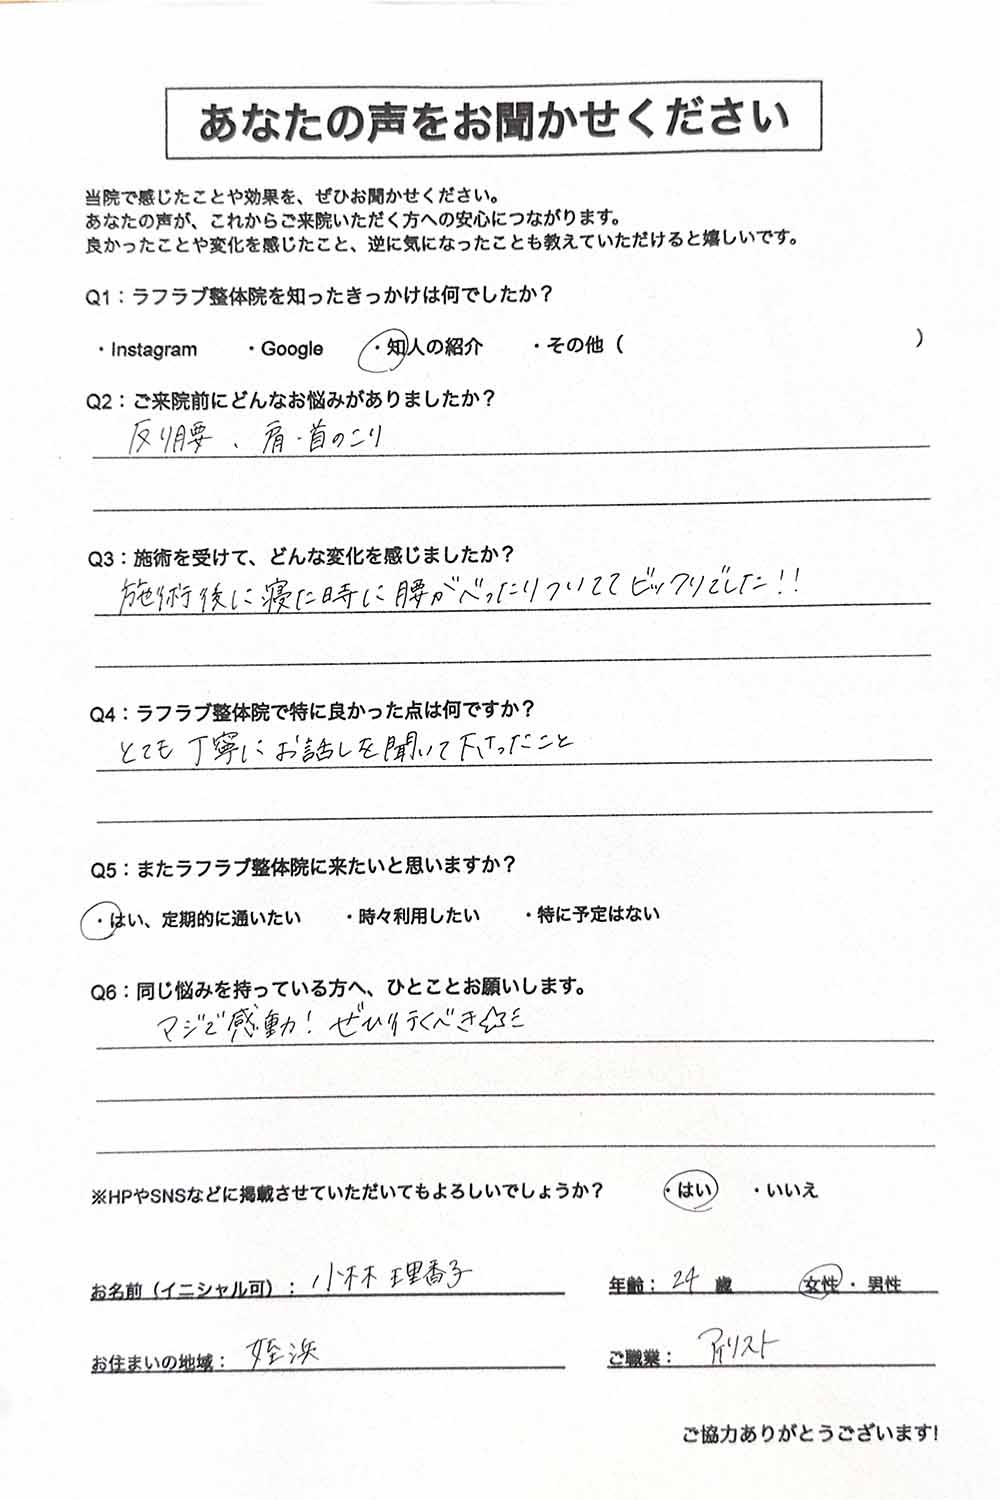 あなたの声をお聞かせください
当院で感じたことや効果を、ぜひお聞かせください。
あなたの声が、これからご来院いただく方への安心につながります。
良かったことや変化を感じたこと、逆に気になったことも教えていただけると嬉しいです。
Q1：ラフラブ整体院を知ったきっかけは何でしたか？
・Instagram ・Google ・知人の紹介 ・その他（ ）
Q2：ご来院前にどんなお悩みがありましたか？
反り腰、肩・首のこり
Q3：施術を受けて、どんな変化を感じましたか？
施術後に寝た時に腰がべったりついててビックリでした!!
Q4：ラフラブ整体院で特に良かった点は何ですか？
とても丁寧にお話しを聞いて下さったこと
Q5：またラフラブ整体院に来たいと思いますか？
・はい、定期的に通いたい ・時々利用したい ・特に予定はない
Q6：同じ悩みを持っている方へ、ひとことお願いします。
マジで感動! ぜひ行くべき☆彡
※HPやSNSなどに掲載させていただいてもよろしいでしょうか？ ・はい ・いいえ
お名前（イニシャル可）： 小林 理香子 年齢： 24 歳 女性 ・ 男性
お住まいの地域： 姪浜 ご職業： アイリスト
ご協力ありがとうございます!